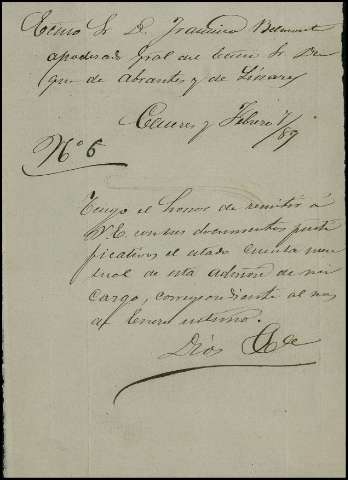 Excmo Sr D. Francisco Belmonte
apoderado Gral del Excmo Sr Du
que de Abrantes y de Linares
Caceres y Febrero 7/89
Nº 6
Tengo el honor de remitir á
V.E. con sus documentos justi
ficativos el estado cuenta men
sual de esta admon de mi
cargo, correspondiente al mes
de Enero ultimo.
Dios &c